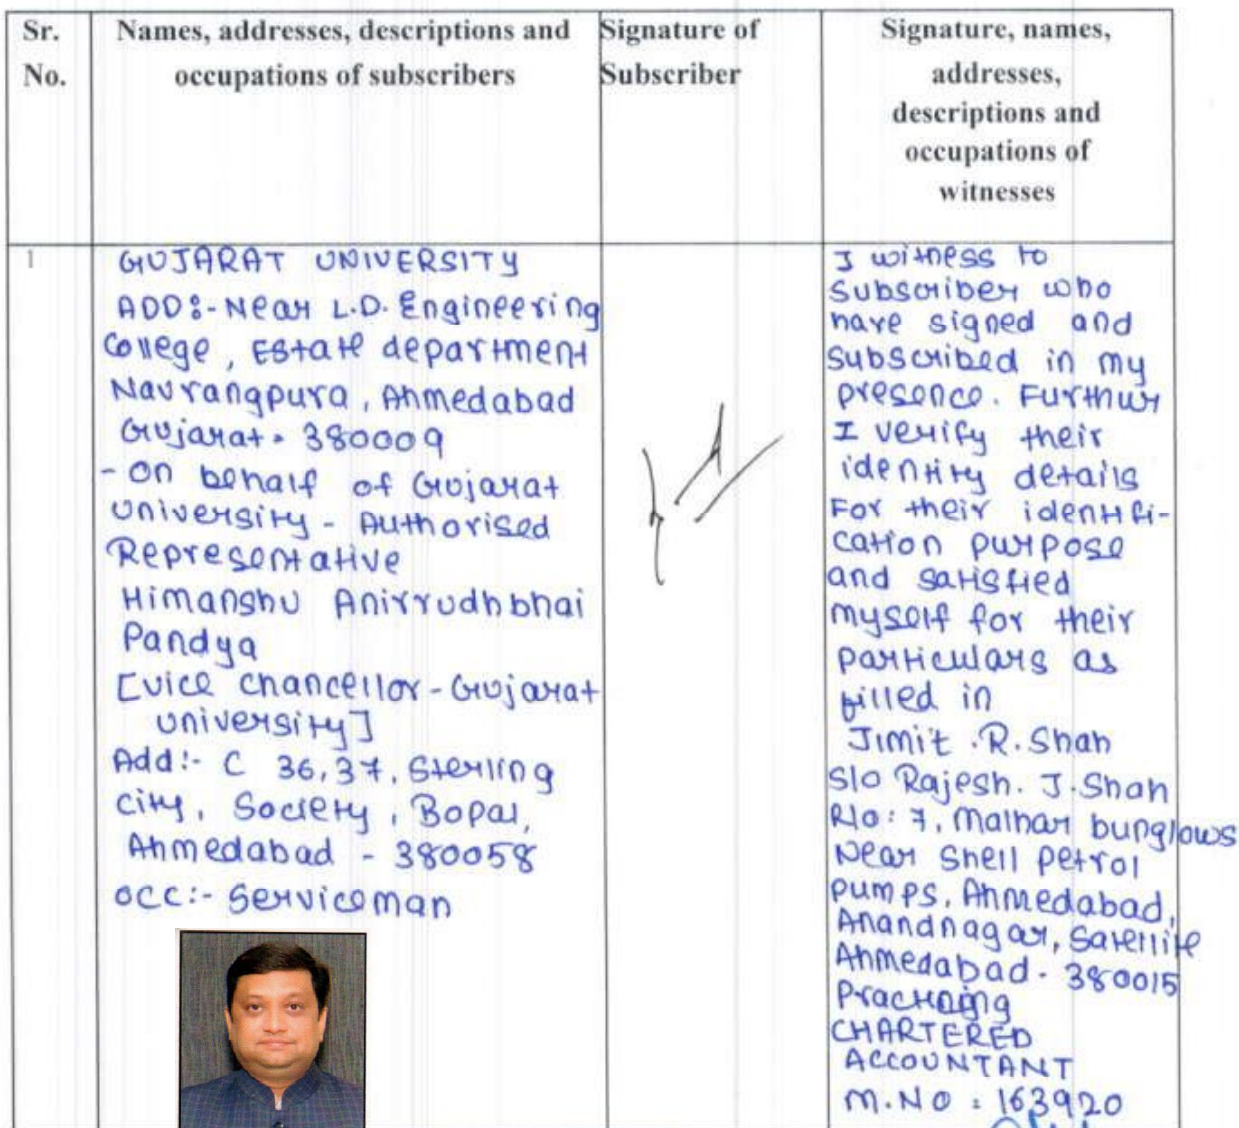 Sr.
No.
Names, addresses, descriptions and
occupations of subscribers
Signature of
Subscriber
Signature, names,
addresses,
descriptions and
occupations of
witnesses
1
GUJARAT UNIVERSITY
ADD:- Near L.D. Engineering
College, Estate department
Navrangpura, Ahmedabad
Gujarat - 380009
- on behalf of Gujarat
University - Authorised
Representative
Himanshu Anirrudhbhai
Pandya
[vice chancellor - Gujarat
University]
Add:- C 36,37, Sterling
City, Society, Bopal,
Ahmedabad - 380058
occ:- Serviceman
I witness to
Subscriber who
have signed and
subscribed in my
presence. Furthur
I verify their
identity details
For their identifi-
cation purpose
and satisfied
myself for their
particulars as
filled in
Jimit .R. Shah
S/o Rajesh. J. Shah
R/o: 7, Malhar bunglows
Near Shell petrol
pumps, Ahmedabad,
Anandnagar, Satellite
Ahmedabad - 380015
CHARTERED
ACCOUNTANT
M.NO : 163920